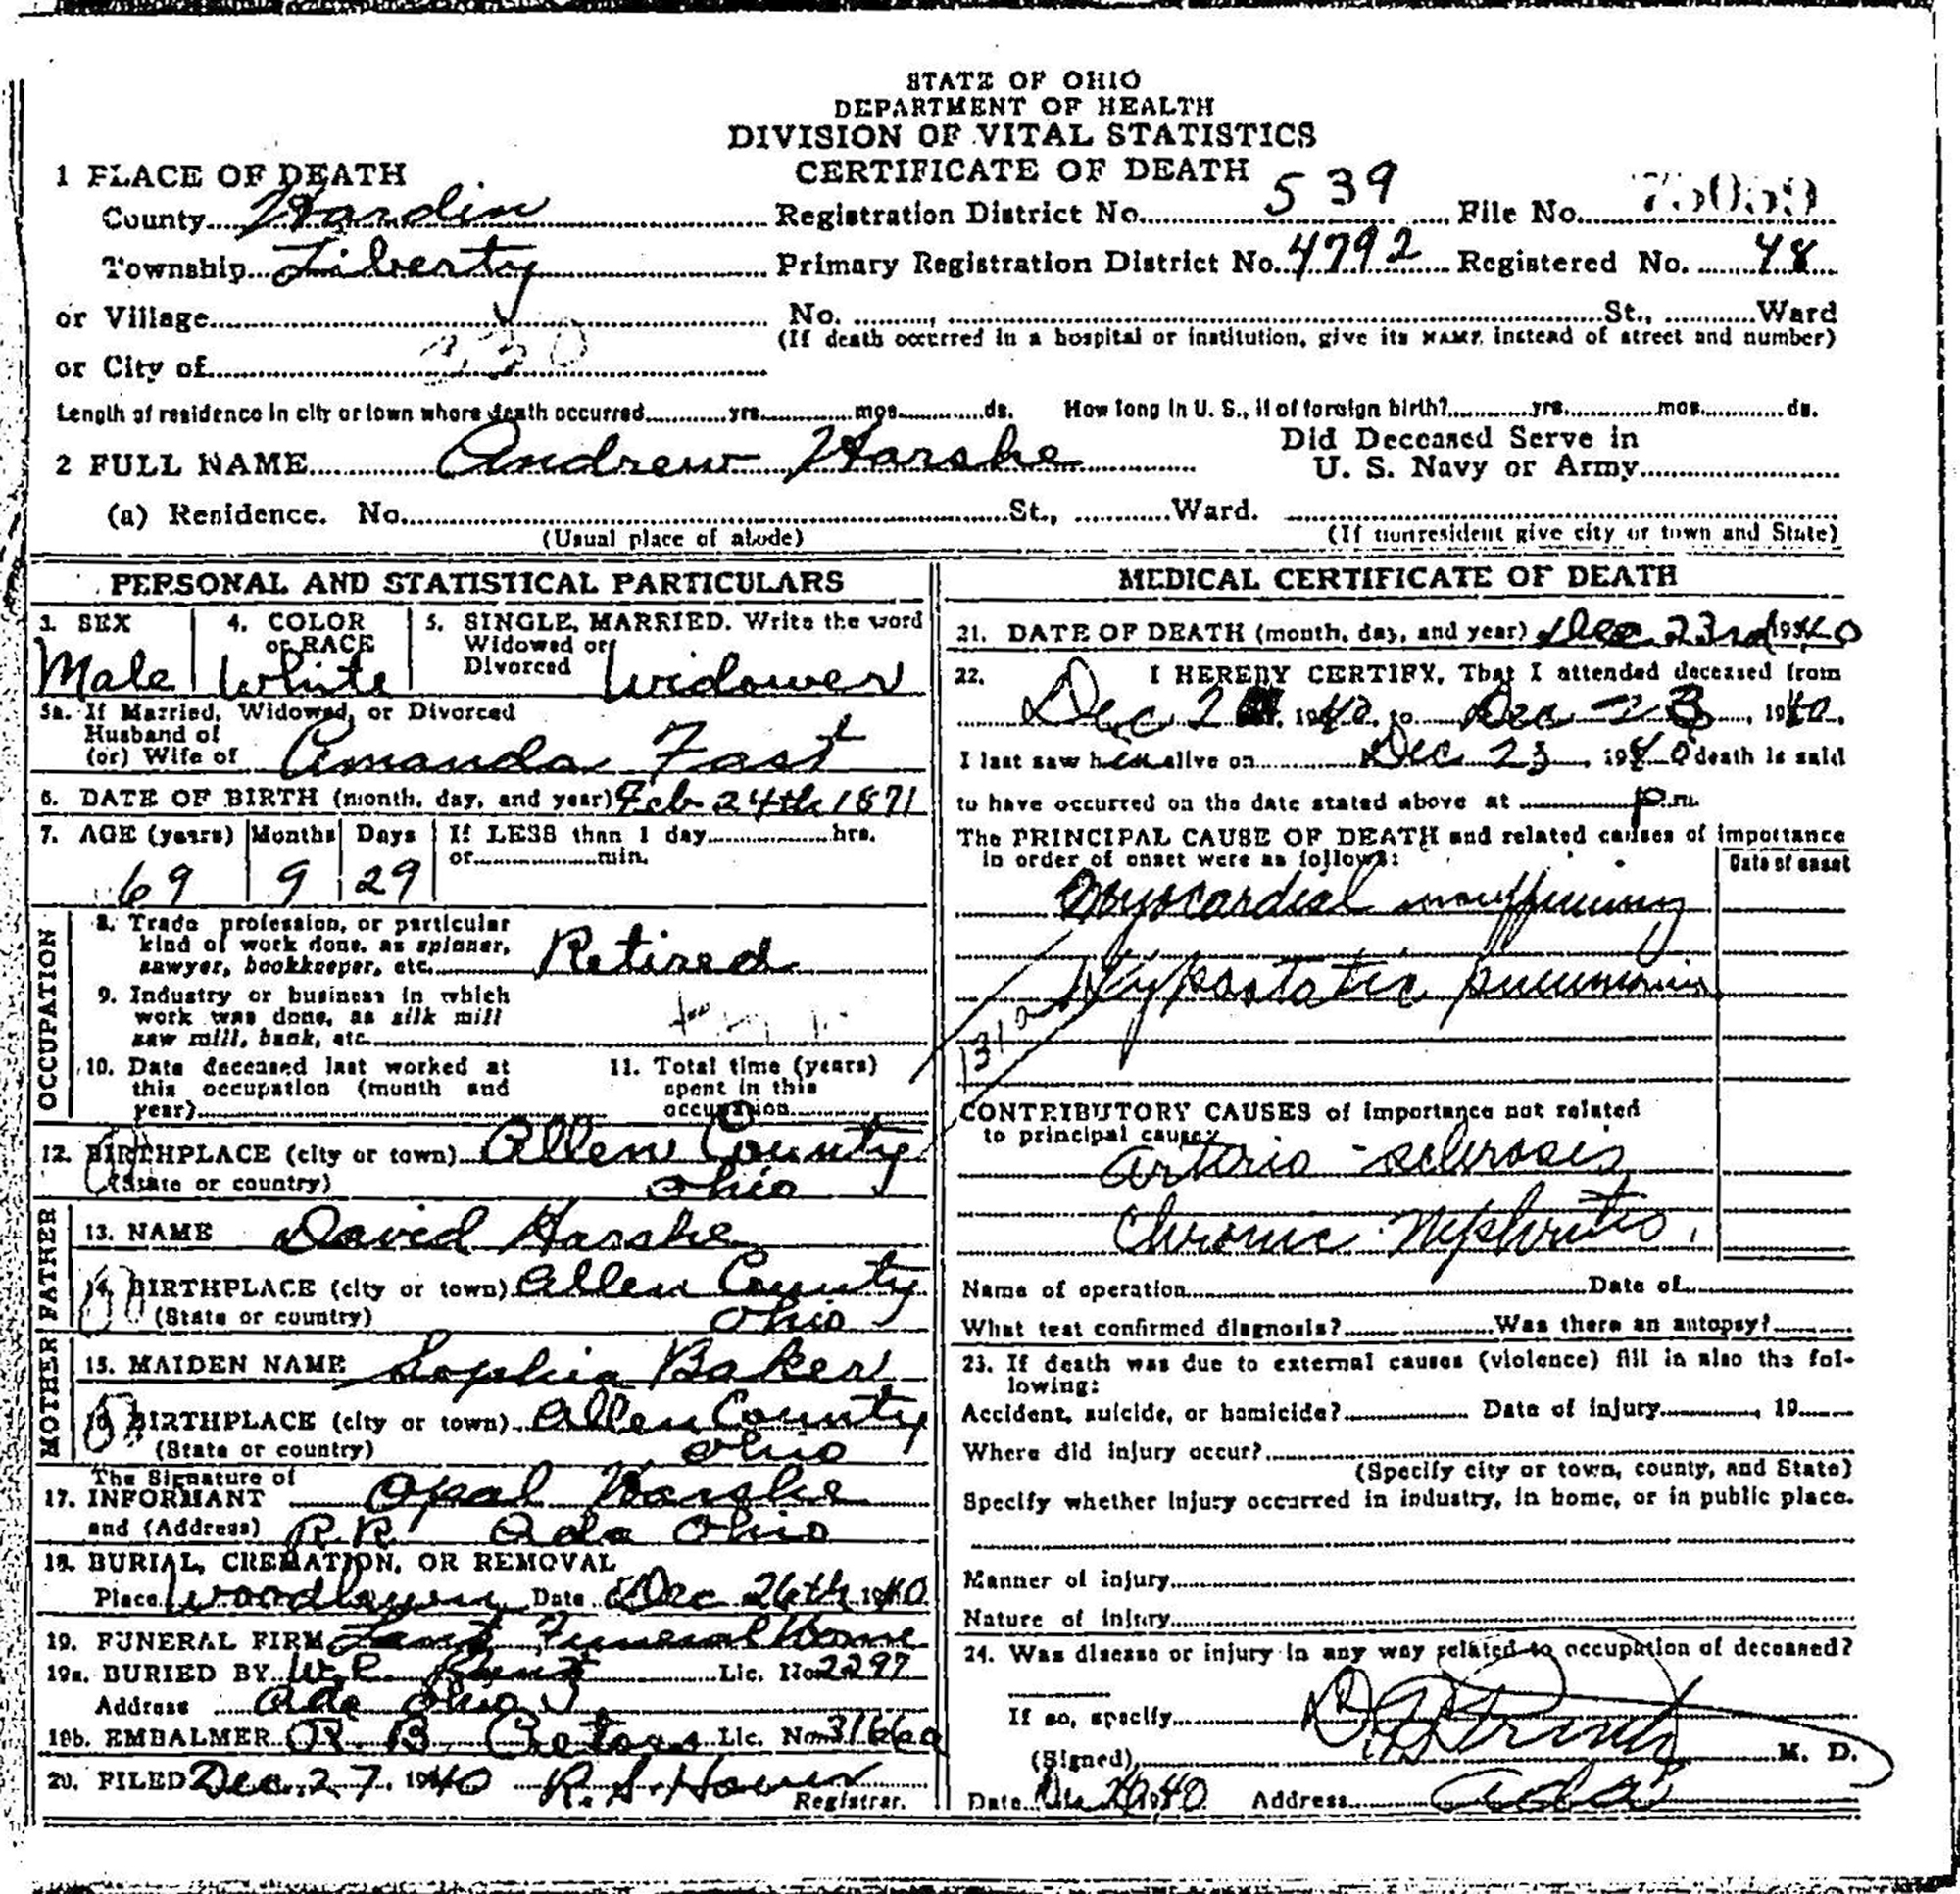 STATE OF OHIO
DEPARTMENT OF HEALTH
DIVISION OF VITAL STATISTICS
CERTIFICATE OF DEATH
1 PLACE OF DEATH
County Hardin Registration District No. 539 File No.
Township Liberty Primary Registration District No. 4792 Registered No. 48
or Village No. St., Ward
(If death occurred in a hospital or institution, give its NAME instead of street and number)
or City of
Length of residence in city or town where death occurred yrs. mos. ds. How long in U. S., if of foreign birth? yrs. mos. ds.
2 FULL NAME Andrew Harshe Did Deceased Serve in
U. S. Navy or Army
(a) Residence. No. St., Ward.
(Usual place of abode) (If nonresident give city or town and State)
PERSONAL AND STATISTICAL PARTICULARS
3. SEX 4. COLOR or RACE 5. SINGLE, MARRIED. Write the word
Widowed or
Divorced
Male White Widower
5a. If Married, Widowed, or Divorced
Husband of
(or) Wife of Amanda Fast
6. DATE OF BIRTH (month, day, and year) Feb 24th 1871
7. AGE (years) Months Days If LESS than 1 day hrs.
or min.
69 9 29
OCCUPATION
8. Trade profession, or particular
kind of work done, as spinner,
sawyer, bookkeeper, etc. Retired
9. Industry or business in which
work was done, as silk mill
saw mill, bank, etc.
10. Date deceased last worked at
this occupation (month and
year)
11. Total time (years)
spent in this
occupation
12. BIRTHPLACE (city or town) Allen County
(State or country) Ohio
FATHER
13. NAME David Harshe
14. BIRTHPLACE (city or town) Allen County
(State or country) Ohio
MOTHER
15. MAIDEN NAME Sophia Baker
16. BIRTHPLACE (city or town) Allen County
(State or country) Ohio
The Signature of
17. INFORMANT Opal Harshe
and (Address) R.R. Ada Ohio
18. BURIAL, CREMATION, OR REMOVAL
Place Woodlawn Date Dec 26th 1940
19. FUNERAL FIRM Funeral Home
19a. BURIED BY Lic. No. 2297
Address Ada Ohio
19b. EMBALMER Lic. No. 3166a
20. FILED Dec. 27, 1940 R. S.
Registrar.
MEDICAL CERTIFICATE OF DEATH
21. DATE OF DEATH (month, day, and year) Dec 23rd 1940
22. I HEREBY CERTIFY, That I attended deceased from
Dec 1940, to Dec 23, 1940,
I last saw him alive on Dec 23, 1940 death is said
to have occurred on the date stated above at p.m.
The PRINCIPAL CAUSE OF DEATH and related causes of importance
in order of onset were as follows: Date of onset
Myocardial insufficiency
Hypostatic pneumonia
131a
CONTRIBUTORY CAUSES of importance not related
to principal cause:
Arterio-sclerosis
Chronic Nephritis.
Name of operation Date of
What test confirmed diagnosis? Was there an autopsy?
23. If death was due to external causes (violence) fill in also the fol-
lowing:
Accident, suicide, or homicide? Date of injury , 19
Where did injury occur?
(Specify city or town, county, and State)
Specify whether injury occurred in industry, in home, or in public place.
Manner of injury
Nature of injury
24. Was disease or injury in any way related to occupation of deceased?
If so, specify
(Signed) M. D.
Date 1940 Address Ada